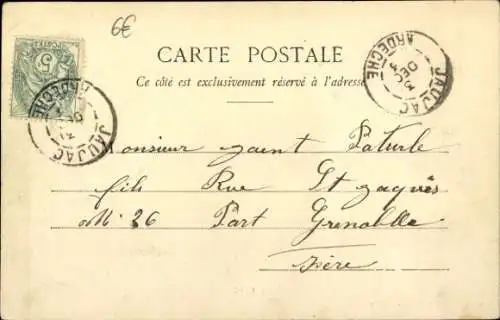 6€
CARTE POSTALE
Ce côté est exclusivement réservé à l'adresse
5
JAUJAC
ARDECHE
DEC
JAUJAC
ARDECHE
Monsieur Paturle
fils Rue St Jaques
26 Grenoble
Isère